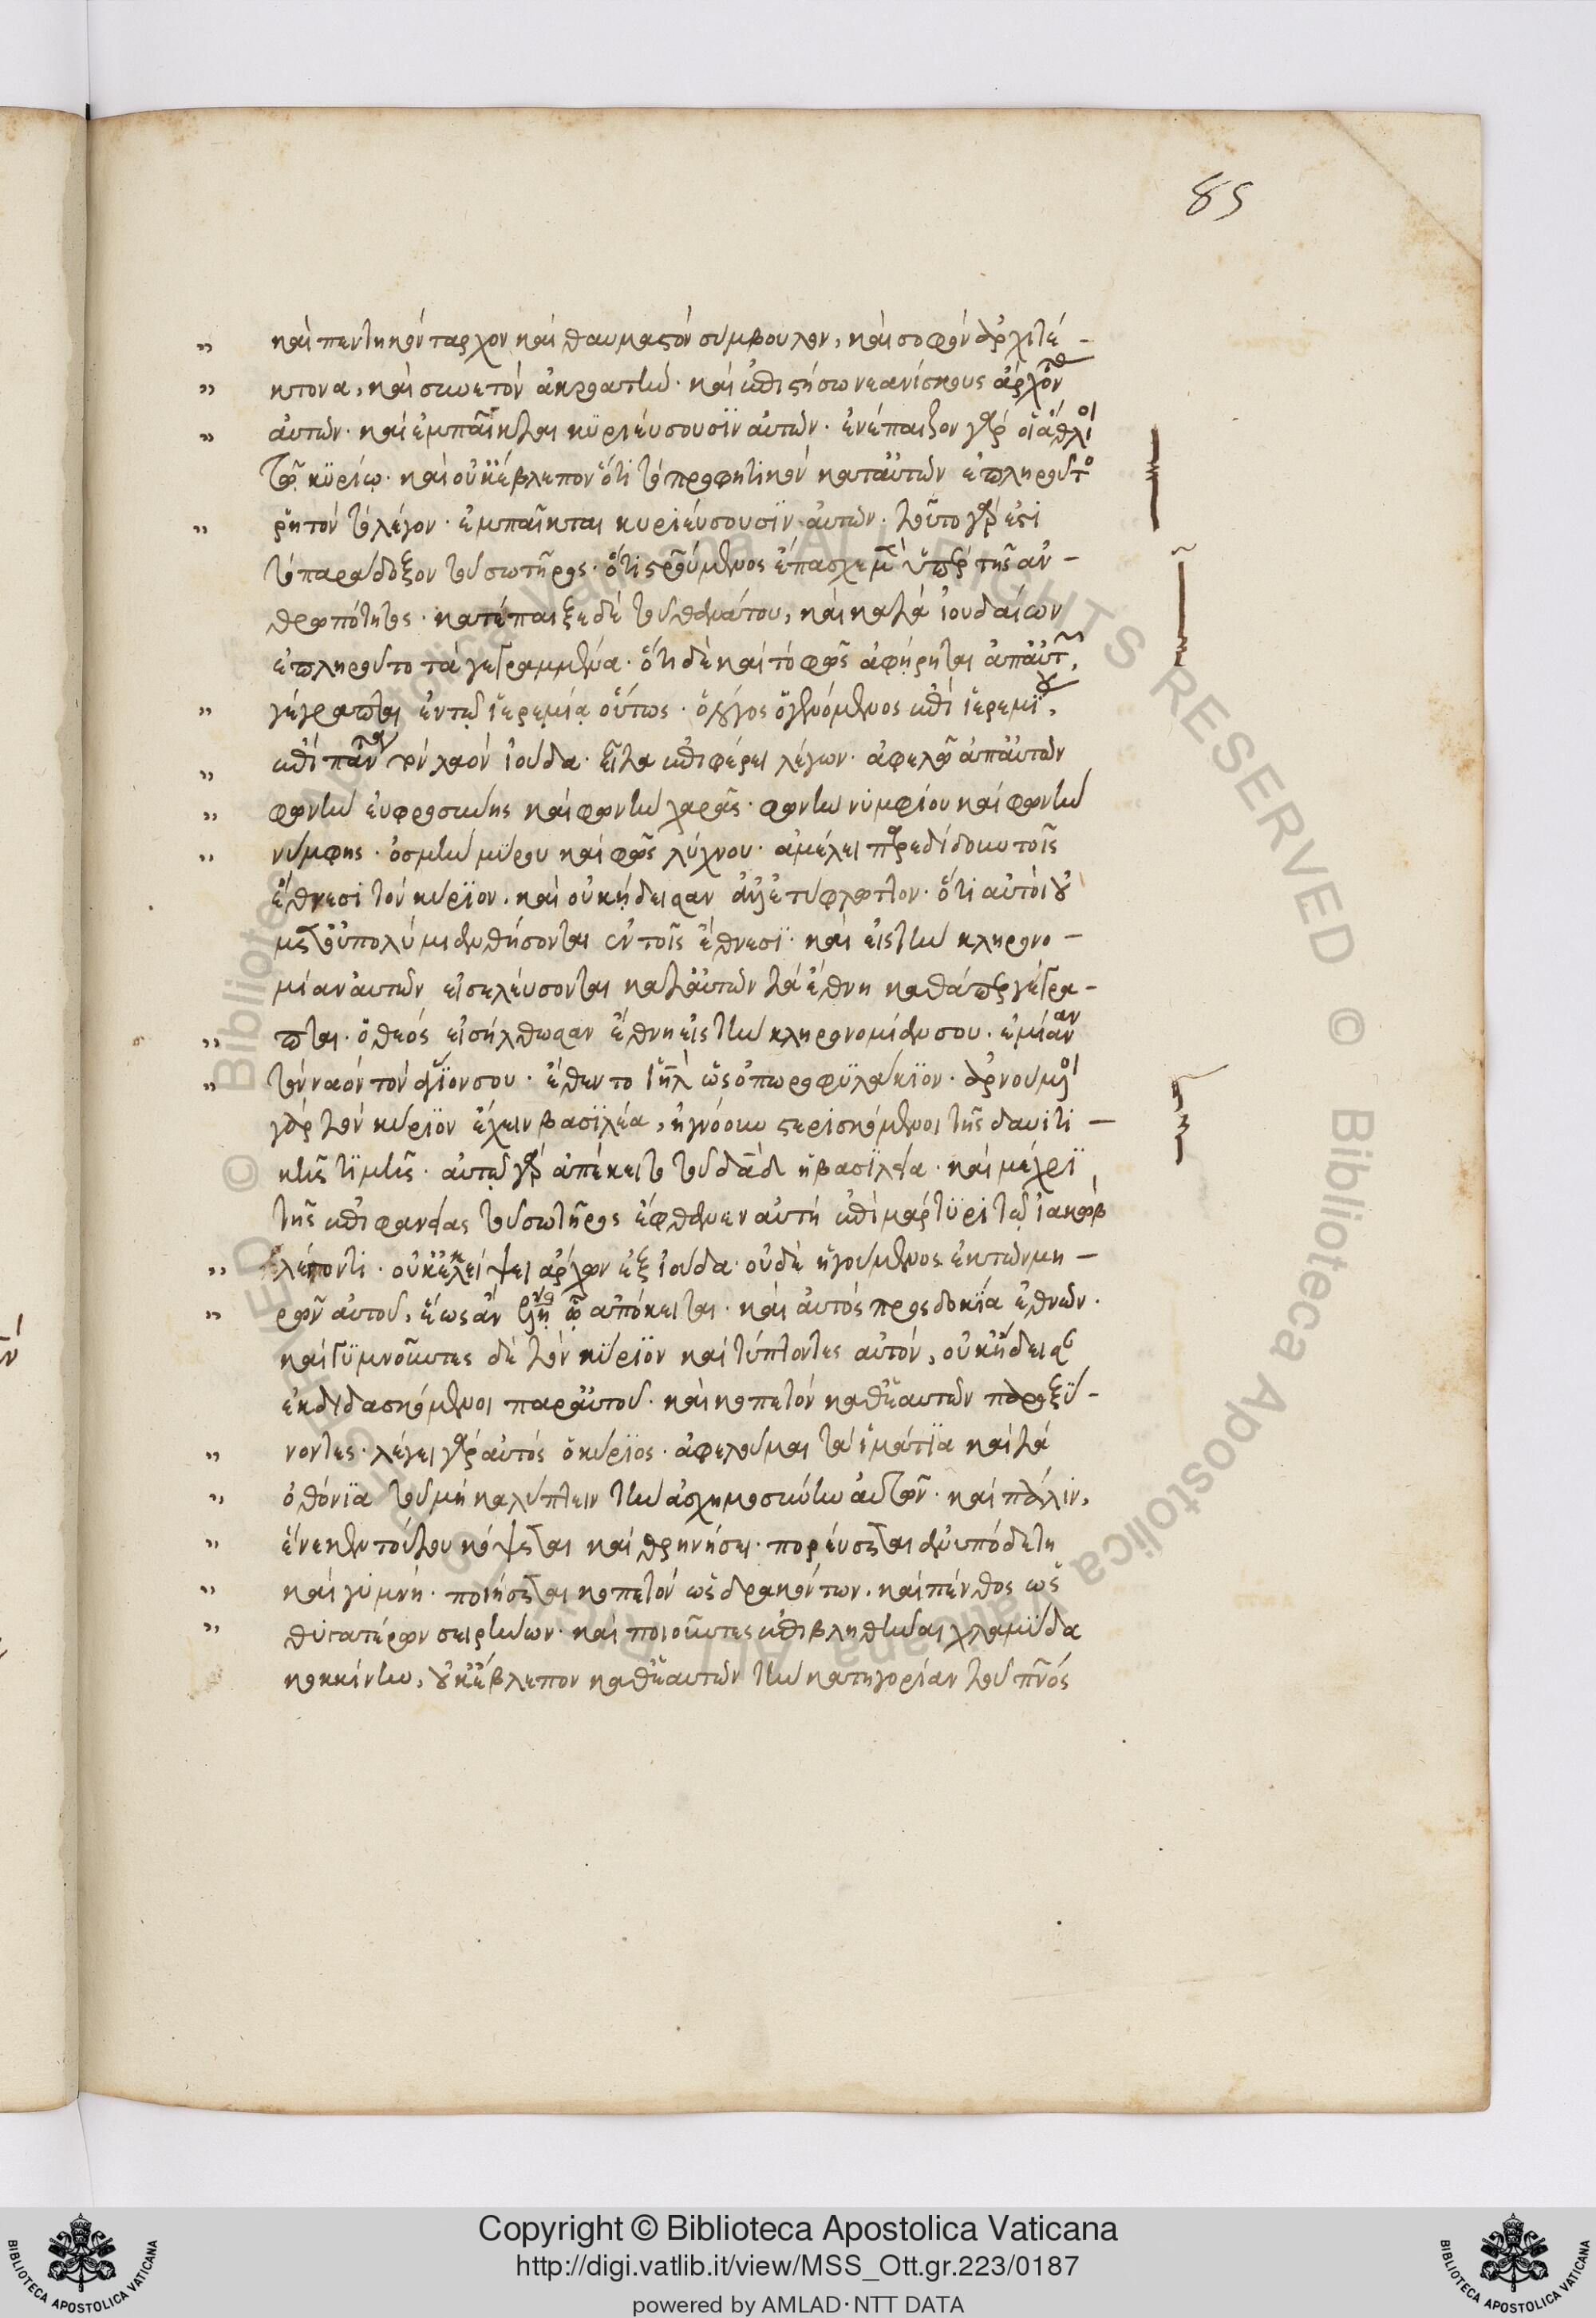 85
καὶ πεντηκόνταρχον καὶ θαυμαστὸν σύμβουλον, καὶ σοφὸν ἀρχιτέ-
κτονα, καὶ συνετὸν ἀκροατήν· καὶ ἐπιστήσω νεανίσκους ἄρχοντ
αὐτῶν· καὶ ἐμπαῖκται κϋριεύσουσϊν αὐτῶν· ἐνέπαιξον γὰρ οἱ ἄθλιοι
τῷ κϋρίῳ· καὶ οὐκ ἔβλεπον ὅτι τὸ προφητικὸν κατ αὐτῶν ἐπληροῦτο
ῥητὸν τὸ λέγον· ἐμπαῖκται κυριεύσουσϊν αὐτῶν· τοῦτο γάρ ἐστι
τὸ παράδοξον τοῦ σωτῆρος· ὅτι σταυρούμενος ἔπασχε μὲν ὑπὲρ τῆς ἀν-
θρωπότητος· κατέπαιξε δὲ τοῦ θανάτου, καὶ κατὰ ἰουδαίων
ἐπληροῦτο τὰ γεγραμμένα· ὅτι δὲ καὶ τὸ φῶς ἀφῄρηται ἀπ αὐτῶν,
γέγραπται ἐν τῷ ἱερεμίᾳ οὕτως· ὁ λόγος ὁ γενόμενος ἐπὶ ἱερεμίου,
ἐπὶ πάντα τὸν λαὸν ἰούδα· εἶτα ἐπιφέρει λέγων· ἀφελῶ ἀπ αὐτῶν
φωνὴν εὐφροσύνης καὶ φωνὴν χαρᾶς· φωνὴν νυμφίου καὶ φωνὴν
νύμφης· ὀσμὴν μύρου καὶ φῶς λύχνου· ἀμέλει παρεδίδουν τοῖς
ἔθνεσι τὸν κύρϊον. καὶ οὐκ ᾔδεισαν ἀλλ ἐτυφλώττον· ὅτι αὐτοὶ οὐ
μετ οὐ πολὺ μιανθήσονται ἐν τοῖς ἔθνεσϊ· καὶ εἰς τὴν κληρονο-
μίαν αὐτῶν εἰσελεύσονται κατ αὐτῶν τὰ ἔθνη καθάπερ γέγρα-
πται· ὁ θεὸς εἰσήλθωσαν ἔθνη εἰς τὴν κληρονομίαν σου· ἐμίαναν
τὸν ναὸν τὸν ἅγϊόν σου· ἔθεντο ἰῆλ ὡς ὀπωροφϋλάκϊον· ἀρνούμενοι
γὰρ τὸν κύρϊον ἔχειν βασϊλέα, ἠγνόουν στερισκόμενοι τῆς δαυιτι-
κῆς τϊμῆς· αὐτῷ γὰρ ἀπέκειτο τοῦ δαδ ἡ βασϊλεία· καὶ μέχρϊ
τῆς ἐπιφανείας τοῦ σωτῆρος ἔφθανεν αὐτὴ ἐπὶ μάρτϋρι τῷ ἰακὼβ
λέγοντι· οὐκ ἐκλείψει ἄρχων ἐξ ἰούδα· οὐδὲ ἡγούμενος ἐκ τῶν μη-
ρῶν αὐτοῦ, ἕως ἂν ἔλθῃ ᾧ ἀπόκειται· καὶ αὐτὸς προσδοκϊα ἐθνῶν·
καὶ γϋμνοῦντες δὲ τὸν κϋρϊον καὶ τύπτοντες αὐτόν, οὐκ ᾔδεισαν
ἐκδιδασκόμενοι παρ αὐτοῦ· καὶ κοπετὸν καθ ἑαυτῶν παροξϋ-
νοντες· λέγει γὰρ αὐτὸς ὁ κύρϊος· ἀφελοῦμαι τὰ ἱμάτϊα καὶ τὰ
ὀθόνϊα τοῦ μὴ καλύπτειν τὴν ἀσχημοσύνην αὐτῶν· καὶ πάλιν,
ἕνεκεν τούτου κόψεται καὶ θρηνήσει· πορεύσεται ἀνυπόδετη
καὶ γυμνή· ποιήσεται κοπετὸν ὡς δρακόντων. καὶ πένθος ὡς
θυγατέρων σειρήνων· καὶ ποιοῦντες ἐπιβληθῆναι χλαμύδα
κοκκίνην, οὐκ ἔβλεπον καθ ἑαυτῶν τὴν κατηγορίαν τοῦ πνός
Copyright © Biblioteca Apostolica Vaticana
http://digi.vatlib.it/view/MSS_Ott.gr.223/0187
powered by AMLAD·NTT DATA